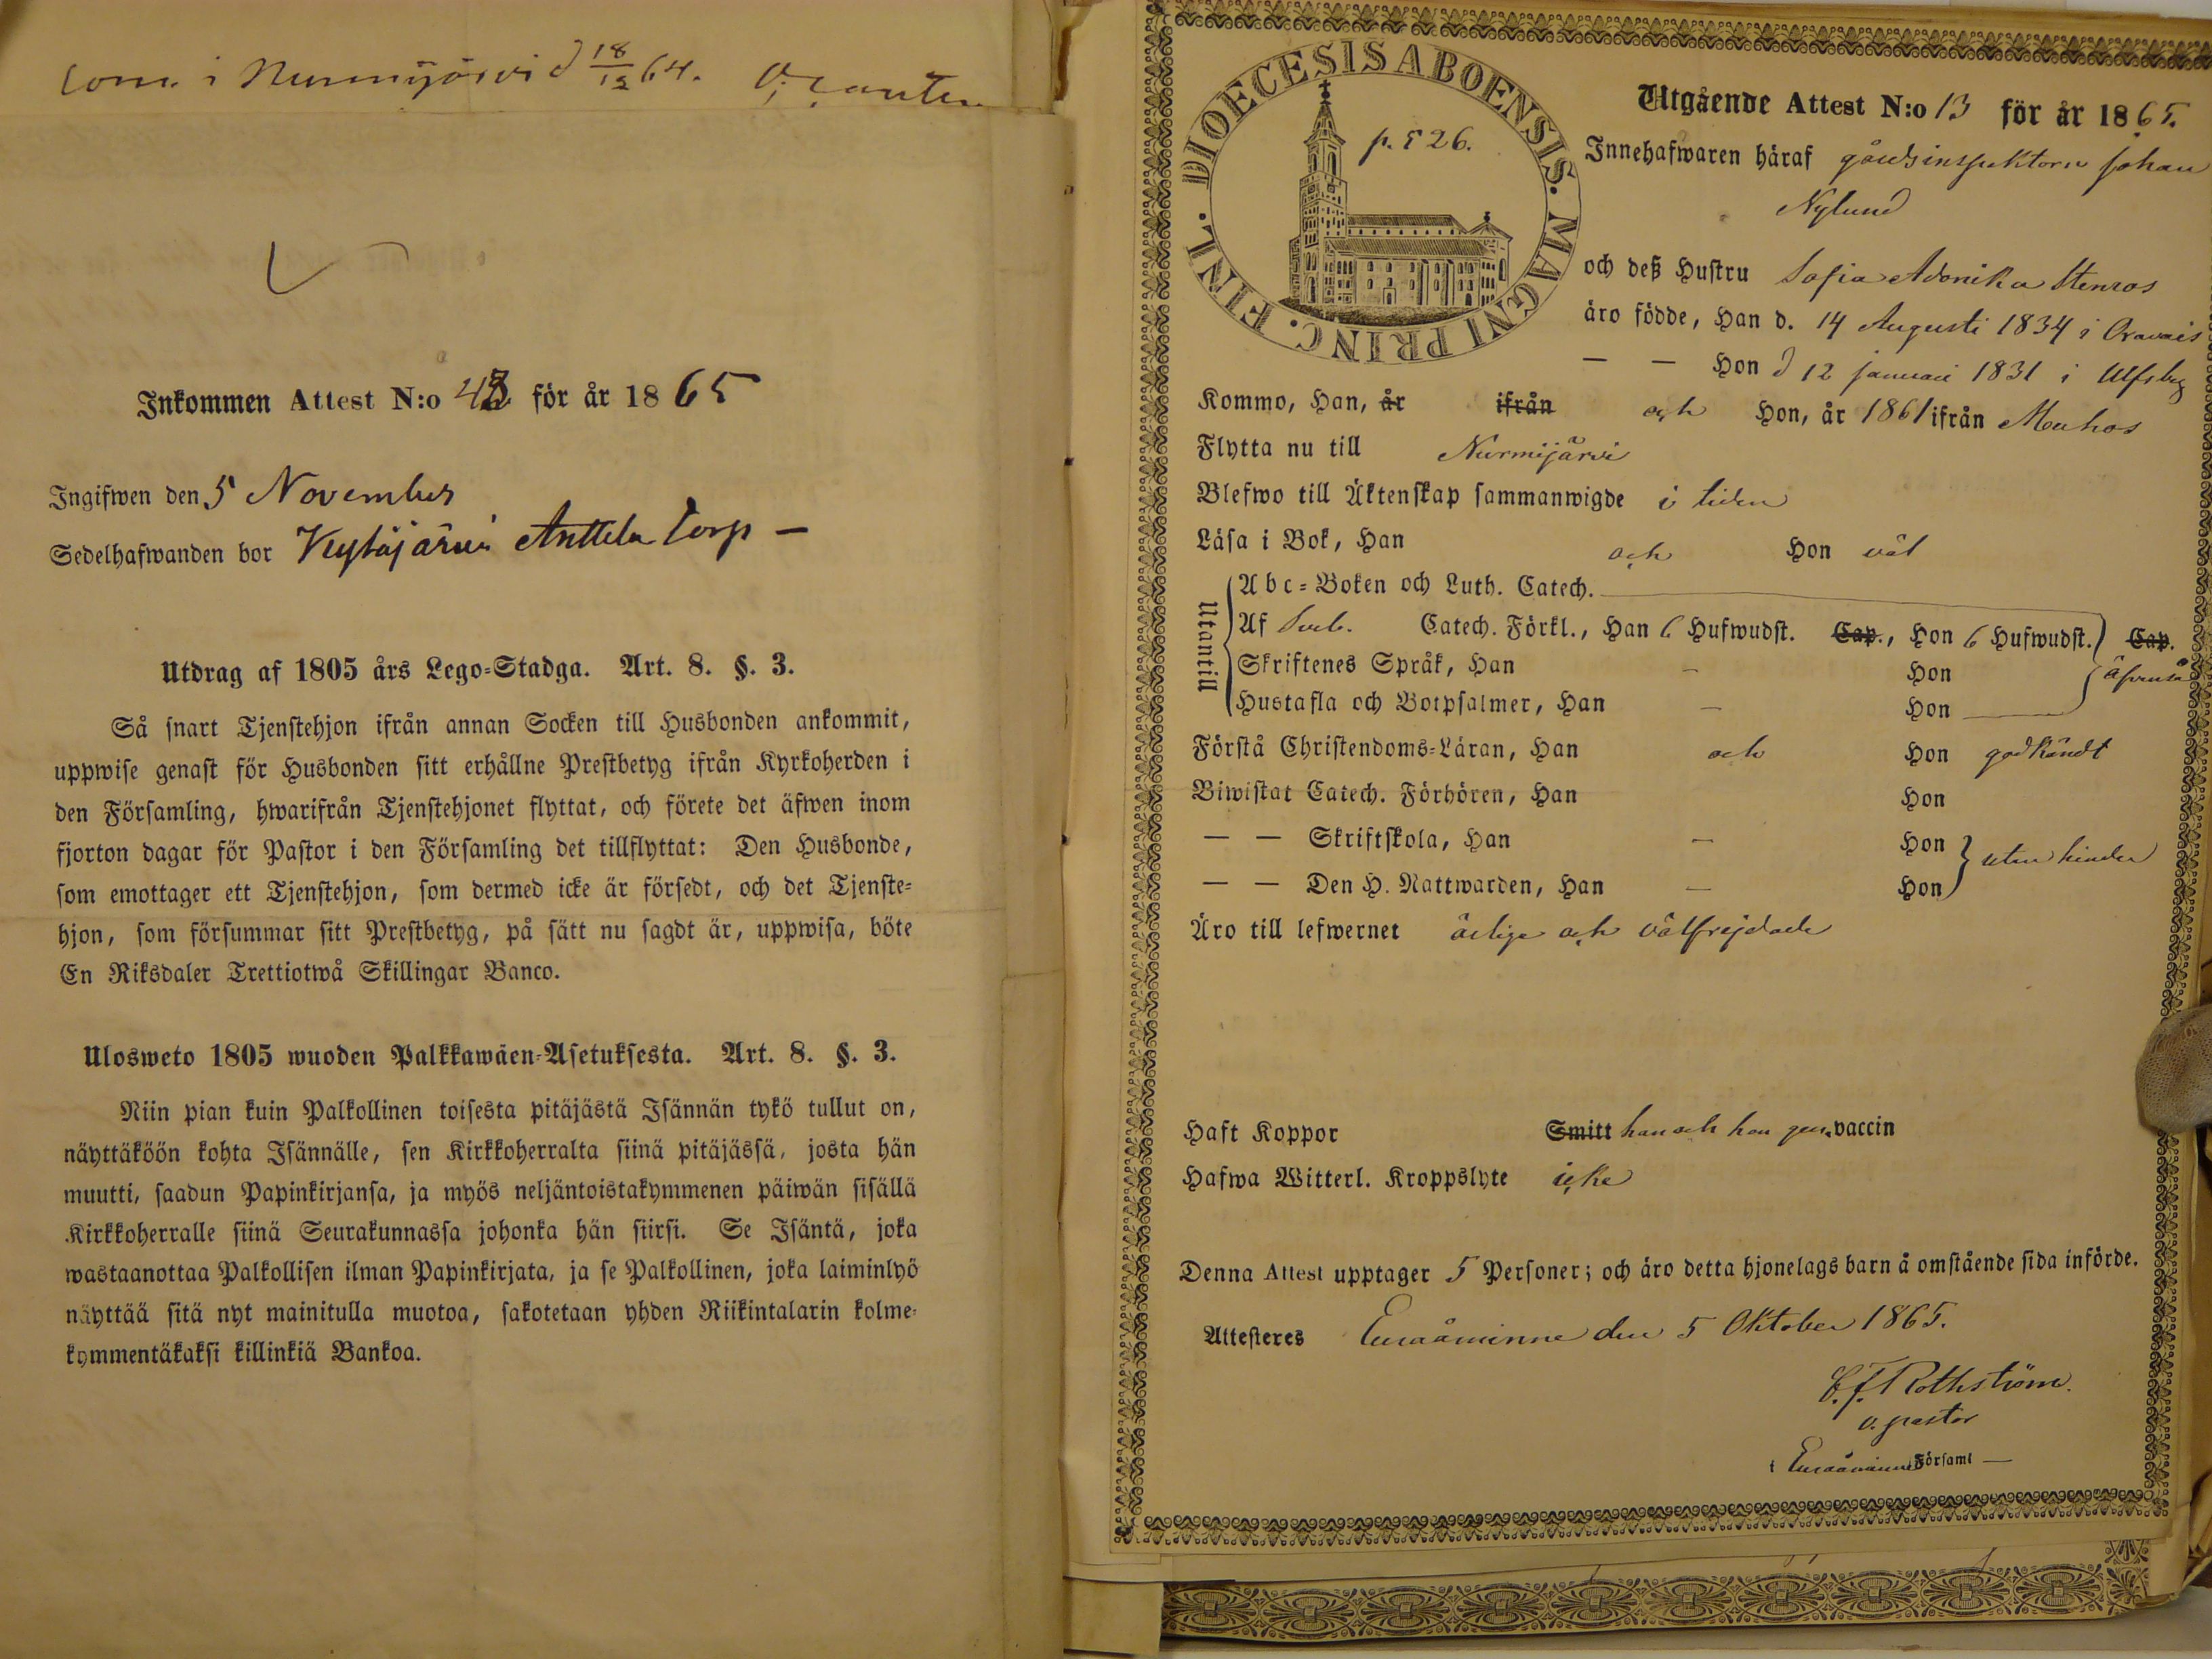 i Nurmijärvi d 18/12 64.
Inkommen Attest N:o för år 1865
Ingifwen den 5 November
Sedelhafwanden bor Kytäjärvi Anttila Torp –
Utdrag af 1805 års Lego=Stadga. Art. 8. §. 3.
Så snart Tjenstehjon ifrån annan Socken till Husbonden ankommit,
uppwise genast för Husbonden sitt erhållne Prestbetyg ifrån Kyrkoherden i
den Församling, hwarifrån Tjenstehjonet flyttat, och förete det äfwen inom
fjorton dagar för Pastor i den Församling det tillflyttat: Den Husbonde,
som emottager ett Tjenstehjon, som dermed icke är försedt, och det Tjenste=
hjon, som försummar sitt Prestbetyg, på sätt nu sagdt är, uppwisa, böte
En Riksdaler Trettiotwå Skillingar Banco.
Ulosweto 1805 wuoden Palkkawäen=Asetuksesta. Art. 8. §. 3.
Niin pian kuin Palkollinen toisesta pitäjästä Isännän tykö tullut on,
näyttäköön kohta Isännälle, sen Kirkkoherralta siinä pitäjässä, josta hän
muutti, saadun Papinkirjansa, ja myös neljäntoistakymmenen päiwän sisällä
Kirkkoherralle siinä Seurakunnassa johonka hän siirsi. Se Isäntä, joka
wastaanottaa Palkollisen ilman Papinkirjata, ja se Palkollinen, joka laiminlyö
näyttää sitä nyt mainitulla muotoa, sakotetaan yhden Riikintalarin kolme=
kymmentäkaksi killinkiä Bankoa.
DIOECESIS ABOENSIS. MAGNI PRINC. FINL.
p. 526.
Utgående Attest N:o 13 för år 1865.
Innehafwaren häraf gårdsinspektorn Johan
Nylund
och deß Hustru Sofia Adonika Stenros
äro födde, Han d. 14 Augusti 1834 i Oravais
— — Hon d 12 januari 1831 i Ulfsby
Kommo, Han, år ifrån och Hon, år 1861 ifrån Mouhos
Flytta nu till Nurmijärvi
Blefwo till Äktenskap sammanwigde i tiden
Läsa i Bok, Han och Hon väl
Utantill
Abc=Boken och Luth. Catech.
Af Sveb. Catech. Förkl., Han 6 Hufwudst. Cap., Hon 6 Hufwudst. Cap.
Skriftenes Språk, Han – Hon äfvenså
Hustafla och Botpsalmer, Han – Hon
Förstå Christendoms=Läran, Han och Hon godkändt
Biwistat Catech. Förhören, Han Hon
— — Skriftskola, Han – Hon utan hinder
— — Den H. Nattwarden, Han – Hon
Äro till lefwernet ärliga och välfrejdade
Haft Koppor Smitt han och hon gen. vaccin
Hafwa Witterl. Kroppslyte icke
Denna Attest upptager 5 Personer; och äro detta hjonelags barn å omstående sida införde.
Attesteres Euraåminne den 5 Oktober 1865.
C. F. Rothström.
v. pastor
i Euraåminne Församl —